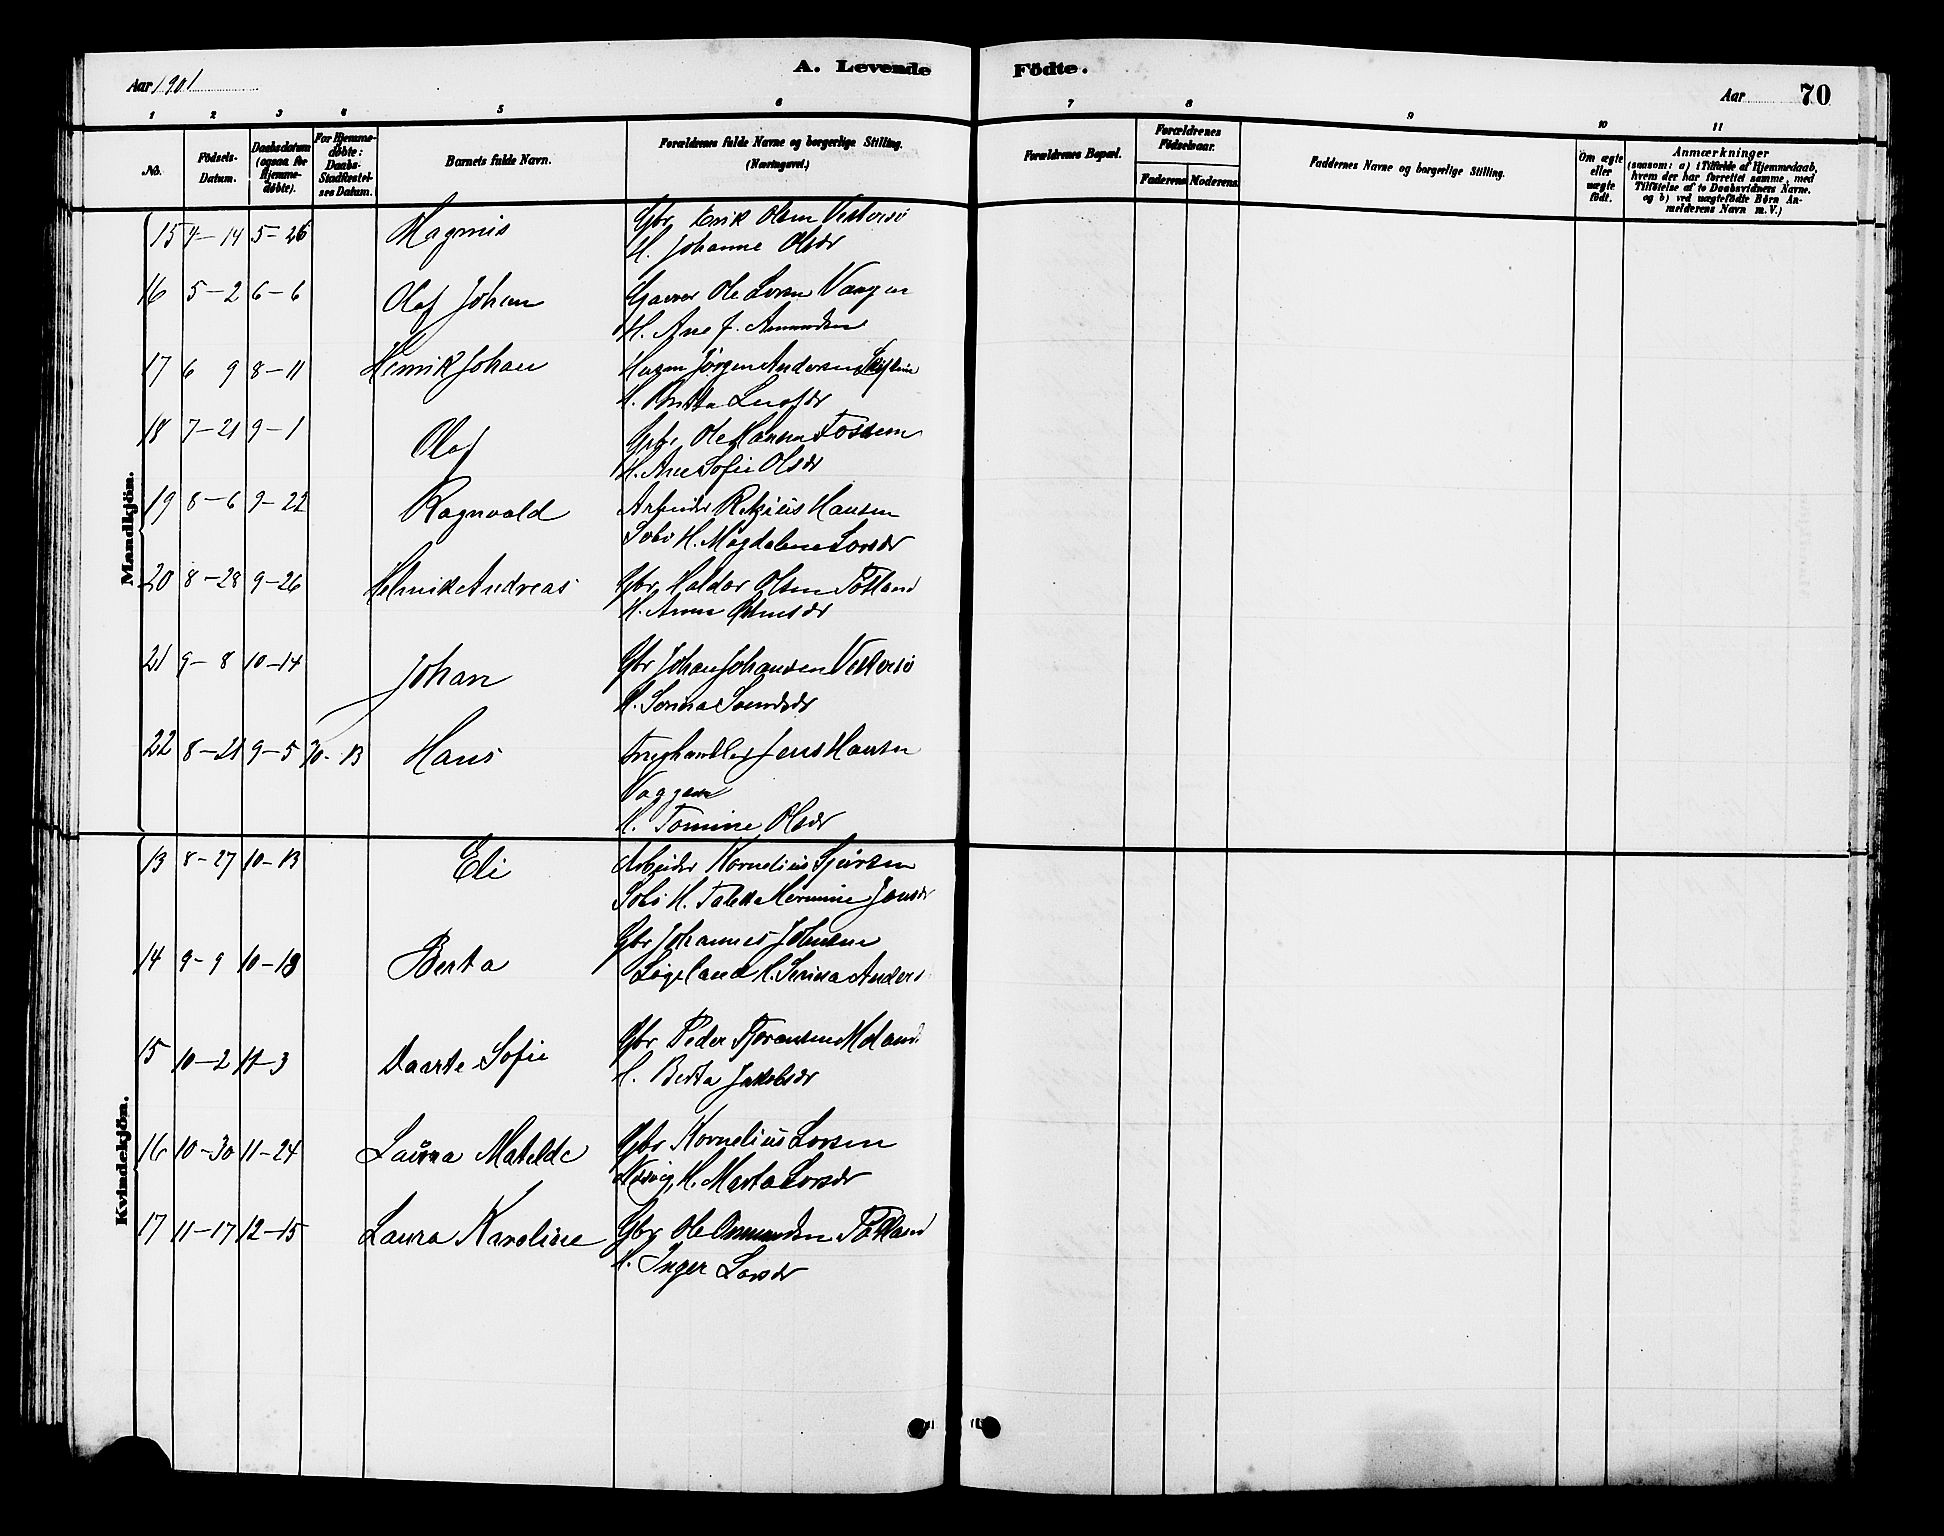 A. Levende Födte.
Aar 1901
Aar 70
1 2 3 4 5 6 7 8 9 10 11
No.
Födsels-Datum.
Daabsdatum (ogsaa for Hjemme-döbte).
For Hjemme-döbte: Daabs-Stadfæstel-ses Datum.
Barnets fulde Navn.
Forældrenes fulde Navne og borgerlige Stilling. (Næringsvei.)
Forældrenes Bopæl.
Forældrenes Födselsaar.
Faderens Moderens.
Faddernes Navne og borgerlige Stilling.
Om ægte eller uægte födt.
Anmærkninger
(saasom: a) i Tilfælde af Hjemmedaab,
hvem der har forrettet samme, med
Tilföielse af to Daabsvidners Navne.
og b) ved uægtefödte Börn An-
melderens Navn m. V.)
Mandkjön.
15 4-14 5-26 Magnus Gbr Erik Olsen Vestersö
H. Johanne Olsdr
16 5-2 6-6 Olaf Johan Ole Larsen Vaagen
H. Ane J. Amundsen
17 6 9 8-11 Henrik Johan Jörgen Andersen
H. Larsdr
18 7-21 9-1 Olaf Gbr. Ole Hansen Fossem
H. Ane Sofie Olsdr
19 8-6 9-22 Ragnvald Arbeider Hansen
H. Magdalene Larsdr
20 8-28 9-26 Helmik Andreas Gbr Haldor Olsen Totland
H. Anna
21 9-8 10-14 Johan Gbr Johan Johansen Vestersö
H. Serina Svendsdr
22 8-21 9-5 10-13 Hans Jens Hansen
Vaagen
H. Tomine Olsdr
Kvindekjön.
13 8-27 10-13 Eli Arbeider Kornelius Sjursen
H. Hermine Jansdr
14 9-9 10-13 Berta Gbr Johannes Johnsen
H. Serina Anders
15 10-2 11-3 Daarte Sofie Gbr Peder Meland
H. Berta Jakobsdr
16 10-30 11-24 Laura Matelde Gbr Kornelius Larsen
H. Marta Larsdr
17 11-17 12-15 Laura Karoline Gbr Ole Osmundsen Totland
H. Inger Larsdr